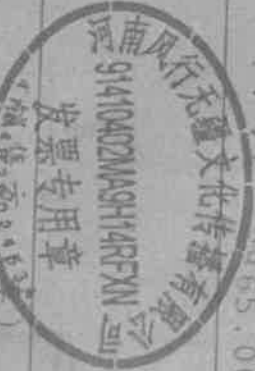 河南风行无疆文化传播有限公司
91410402MA9H14RFXN
发票专用章